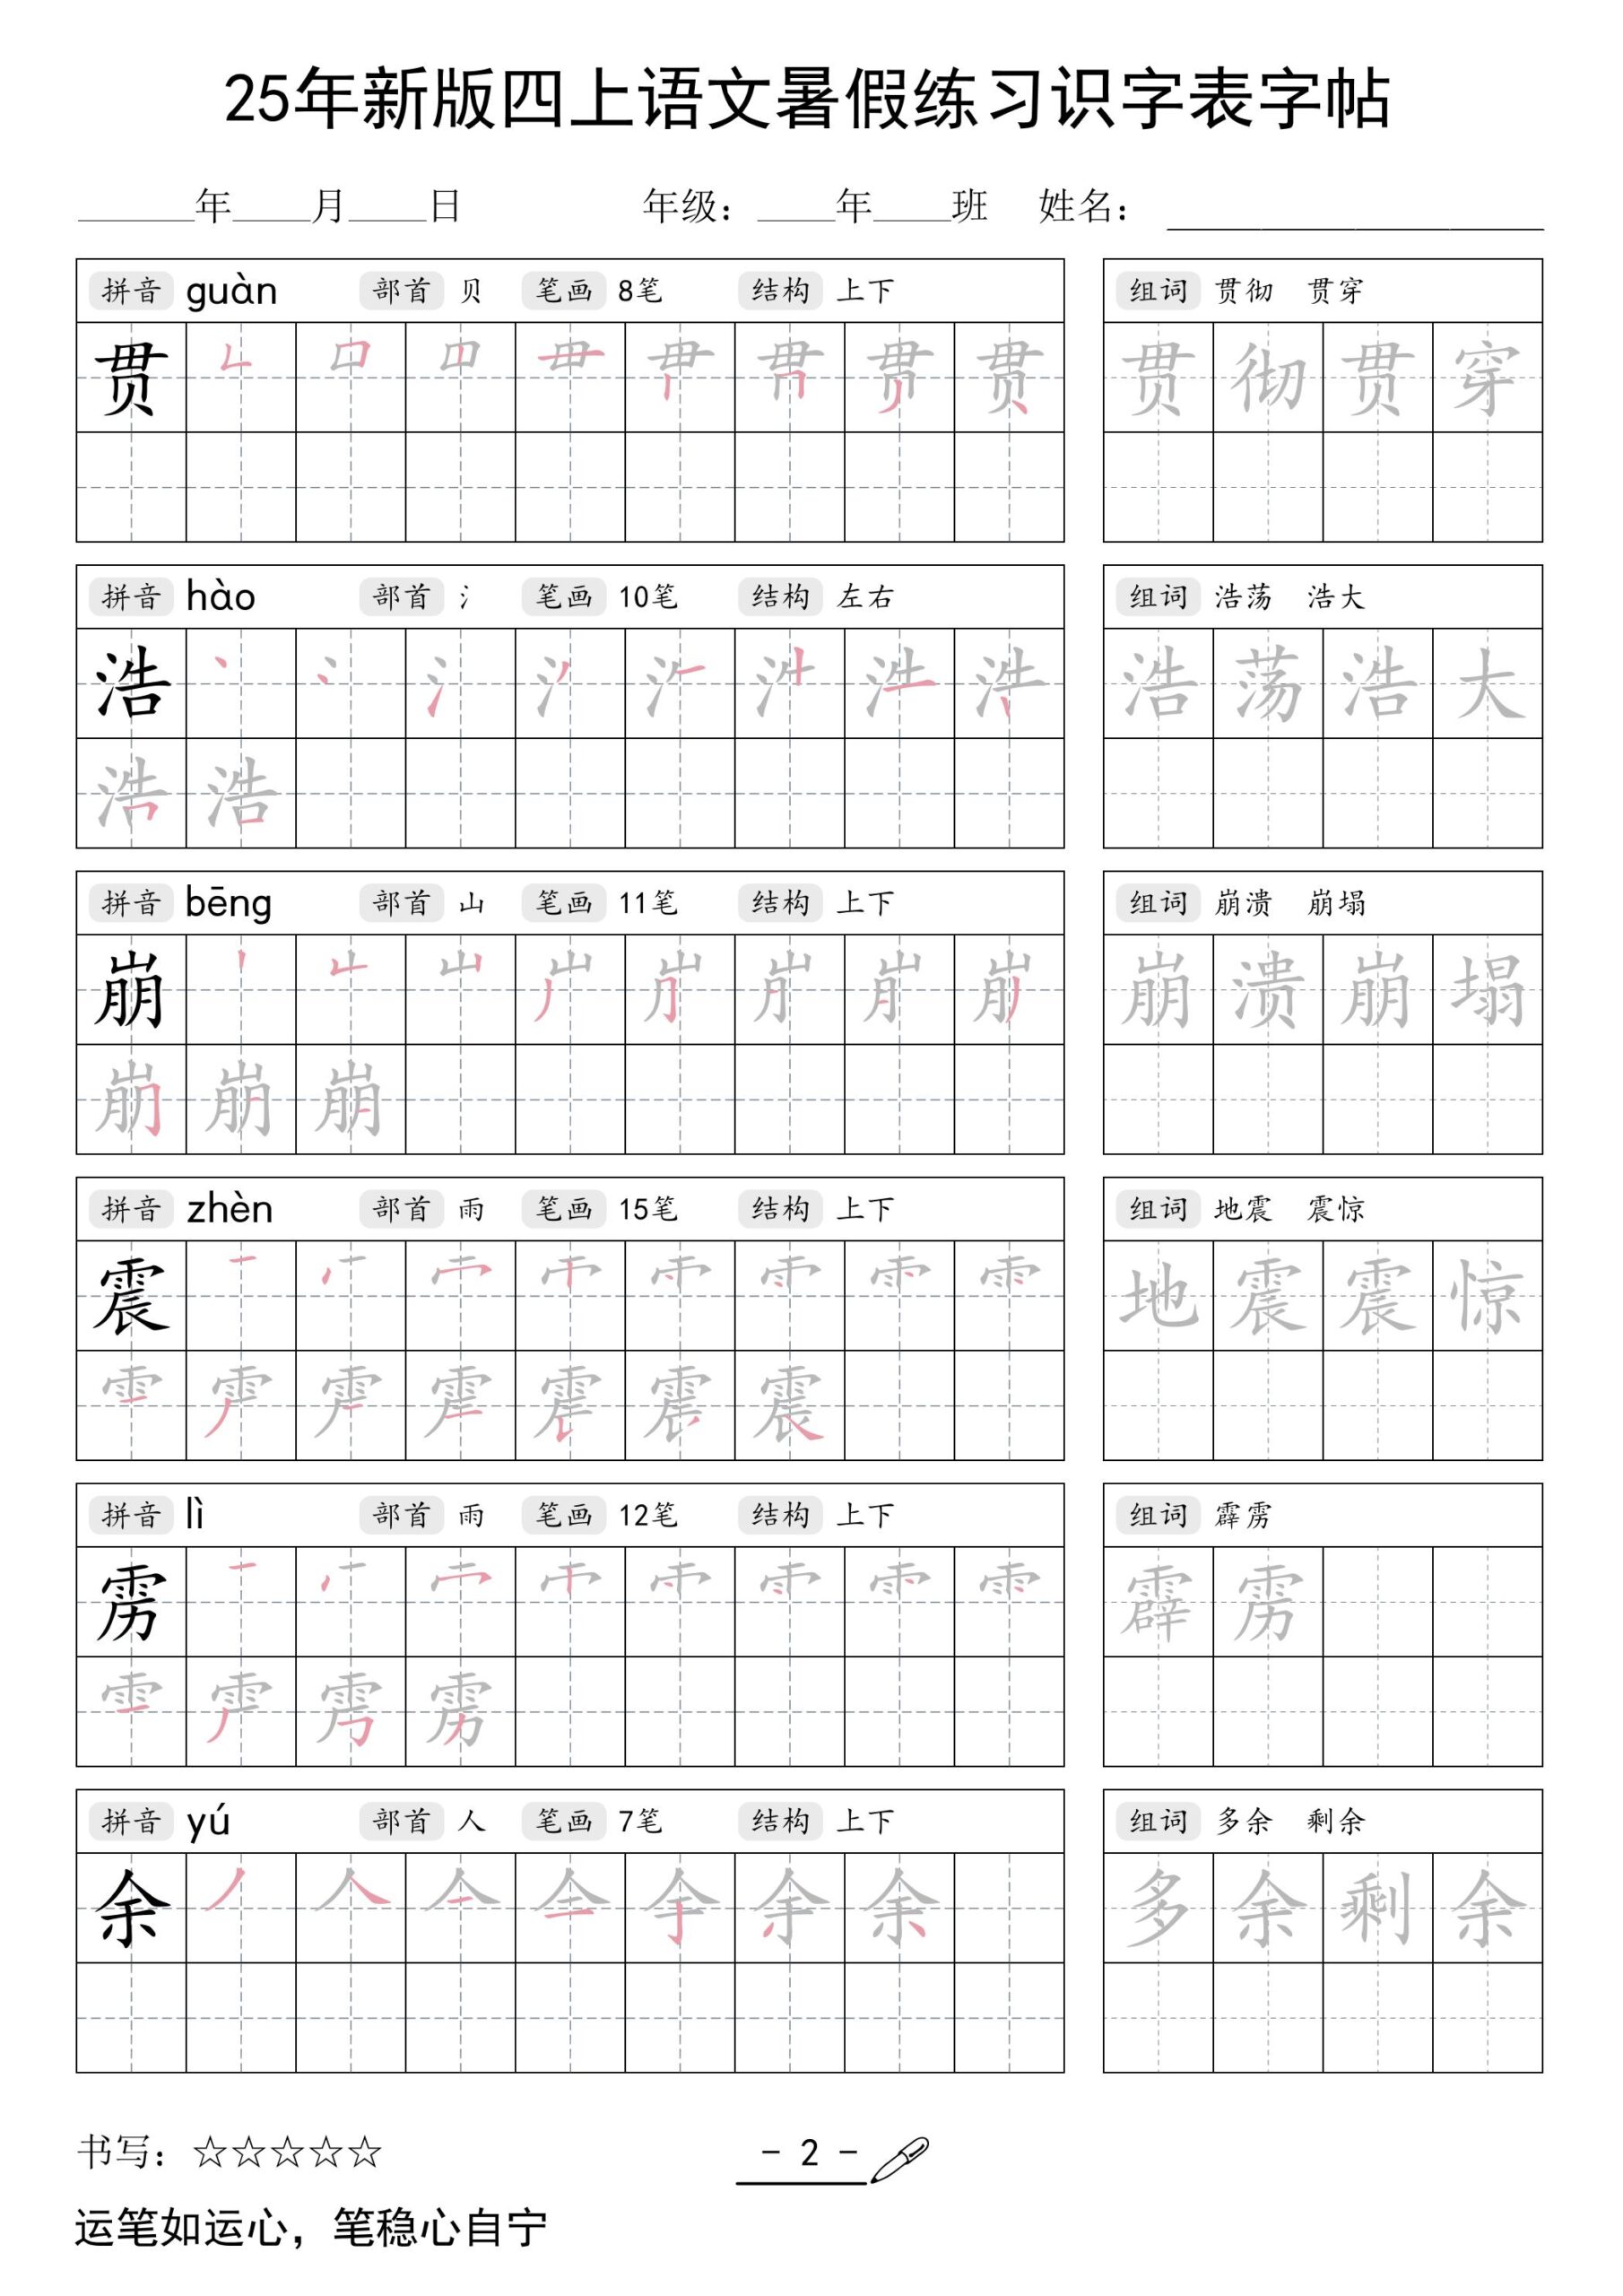 25年新版四上语文暑假练习识字表字帖
______年____月____日 年级：____年____班 姓名：____________________
拼音 guàn 部首 贝 笔画 8笔 结构 上下
组词 贯彻 贯穿
贯
贯彻贯穿
拼音 hào 部首 氵 笔画 10笔 结构 左右
组词 浩荡 浩大
浩
浩荡浩大
浩 浩
拼音 bēng 部首 山 笔画 11笔 结构 上下
组词 崩溃 崩塌
崩
崩溃崩塌
崩 崩 崩
拼音 zhèn 部首 雨 笔画 15笔 结构 上下
组词 地震 震惊
震
地震震惊
震
拼音 lì 部首 雨 笔画 12笔 结构 上下
组词 霹雳
雳
霹雳
雳
拼音 yú 部首 人 笔画 7笔 结构 上下
组词 多余 剩余
余
多余剩余
书写：☆☆☆☆☆
- 2 -
运笔如运心，笔稳心自宁